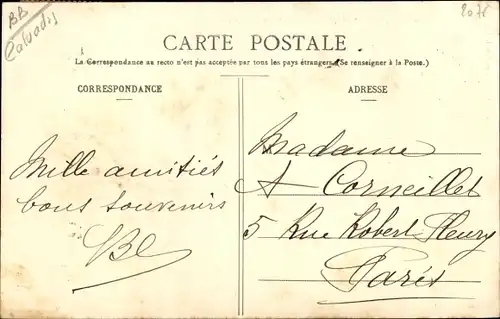 BB
Calvados
2075
CARTE POSTALE
La Correspondance au recto n'est pas acceptée par tous les pays étrangers (Se renseigner à la Poste.)
CORRESPONDANCE
ADRESSE
Mille amitiés
bons souvenirs
Madame
A Corneillet
5 Rue Robert Fleury
Paris